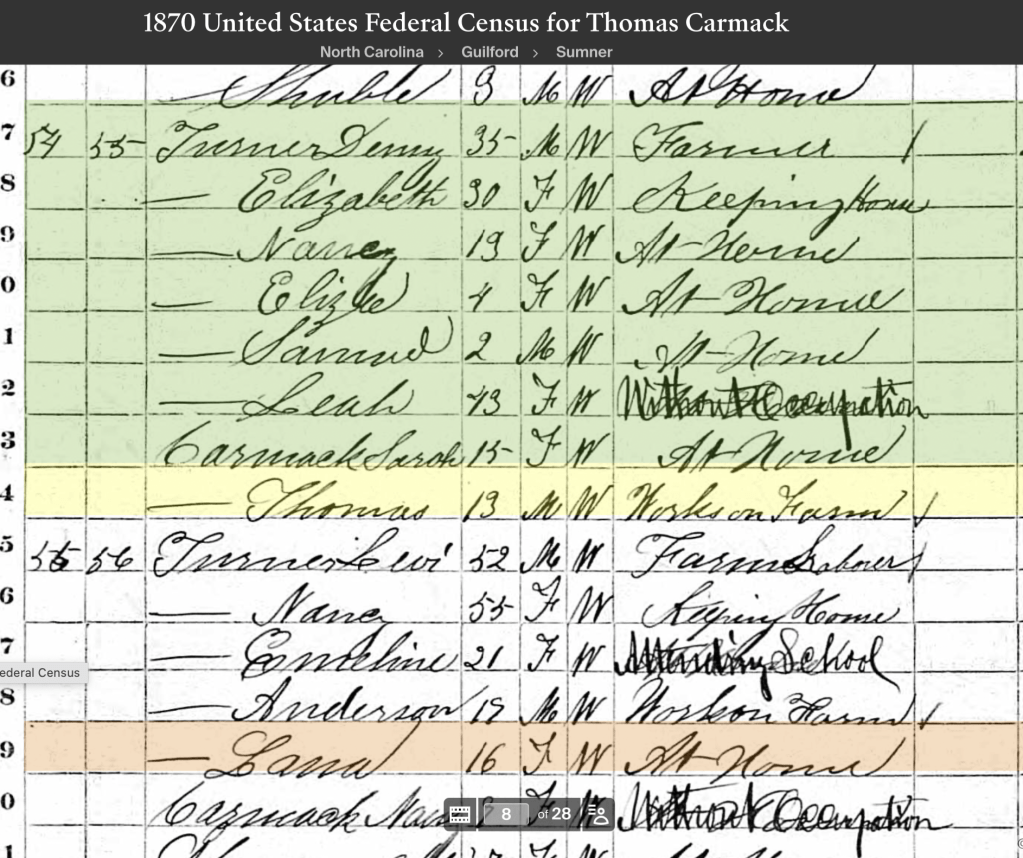 1870 United States Federal Census for Thomas Carmack
North Carolina > Guilford > Sumner
6 — Shuble 9 M W At Home
7 54 55 Turner Denny 35 M W Farmer /
8 — Elizabeth 30 F W Keeping House
9 — Nancy 19 F W At Home
0 — Eliza 4 F W At Home
1 — Samuel 2 M W At Home
2 — Leah 73 F W Without Occupation
3 Carmack Sarah 15 F W At Home
4 — Thomas 13 M W Works on Farm /
5 55 56 Turner Levi 52 M W Farm Laborer /
6 — Nancy 55 F W Keeping Home
7 — Emeline 21 F W Attending School
ederal Census
8 — Anderson 19 M W Works on Farm /
9 — 16 F W At Home
0 Carmack F W Without Occupation
8 of 28
1